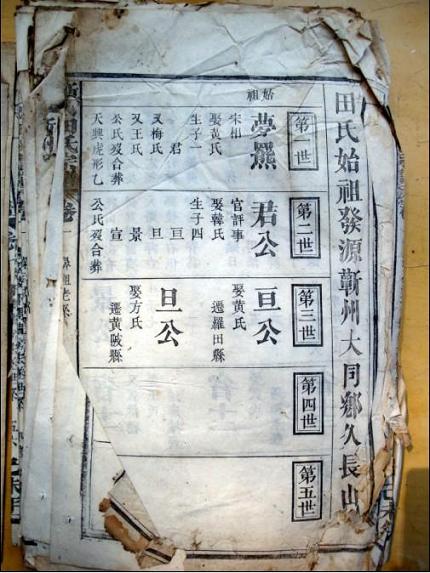 田氏始祖發源蘄州大同鄉久長山
第一世
始祖
夢熊
宋相
娶黃氏
生子一
君
又梅氏
又王氏
公氏歿合葬
天興虎形乙
第二世
君公
官評事
娶韓氏
生子四
亘
旦
景
宣
公氏歿合葬
第三世
亘公
娶黃氏
遷羅田縣
旦公
娶方氏
遷黃陂縣
第四世
第五世